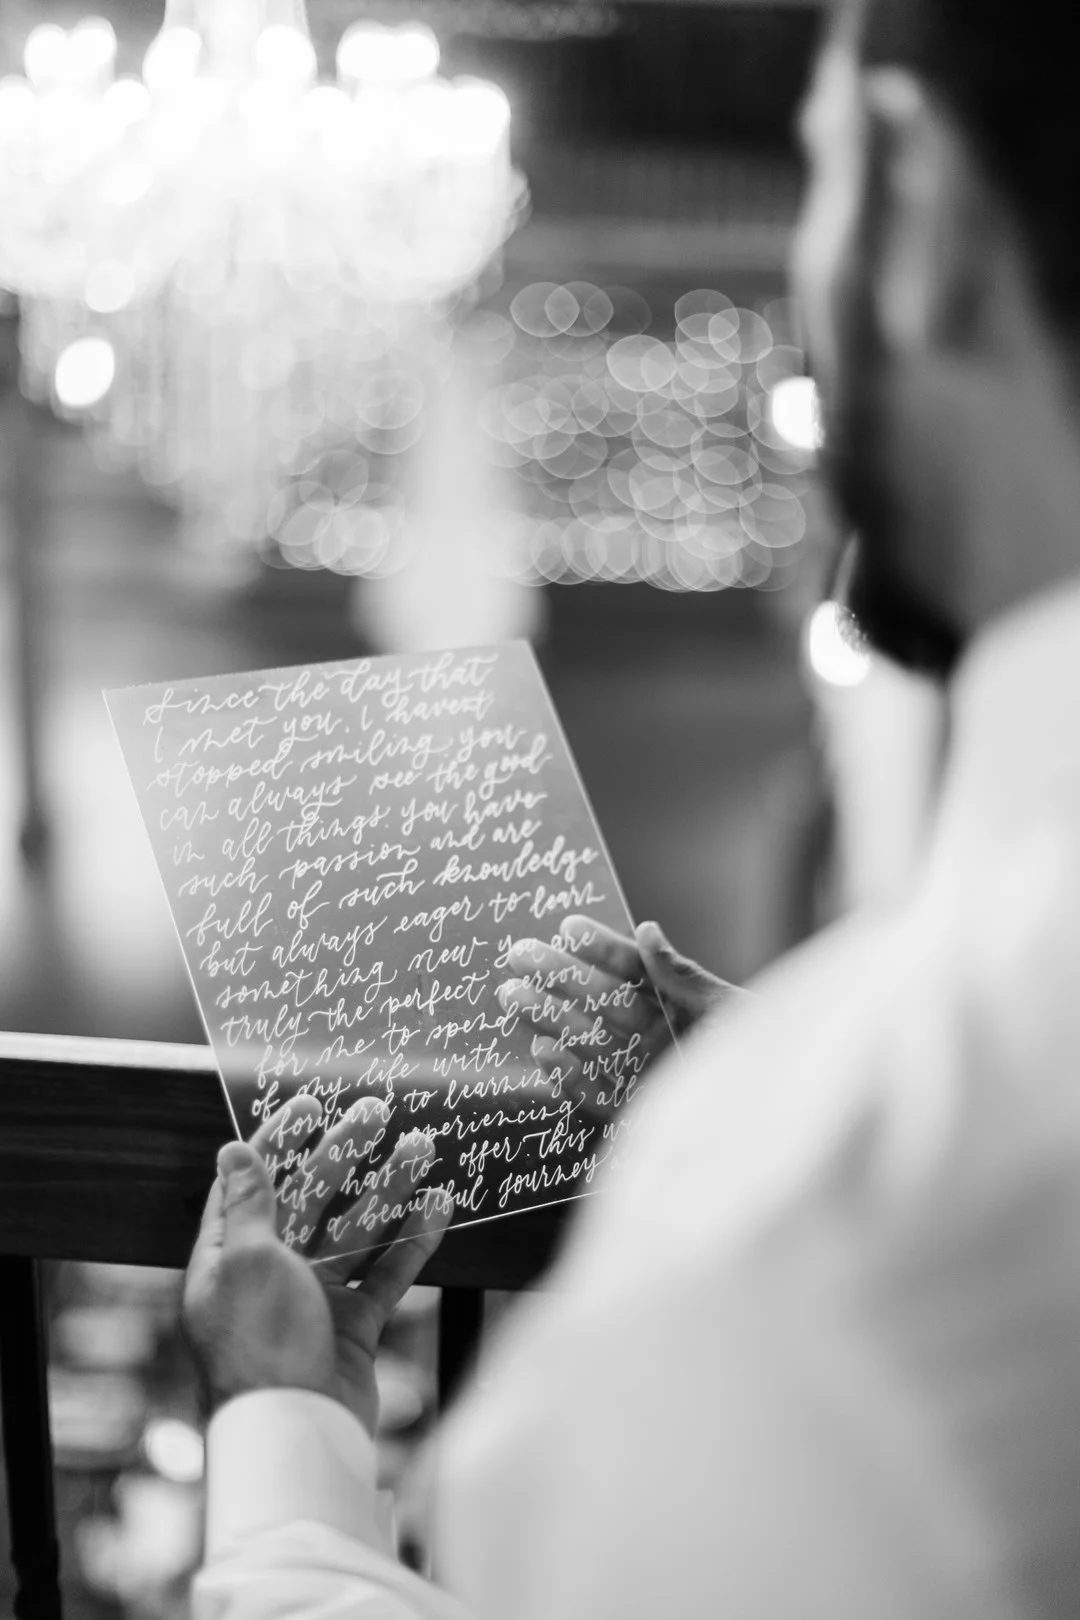 Since the day that
I met you, I havent
stopped smiling you
can always see the good
in all things. you have
such passion and are
full of such knowledge
but always eager to learn
something new. you are
truly the perfect person
for me to spend the rest
of my life with. I look
forward to learning with
you and experiencing all
life has to offer. This
be a beautiful journey